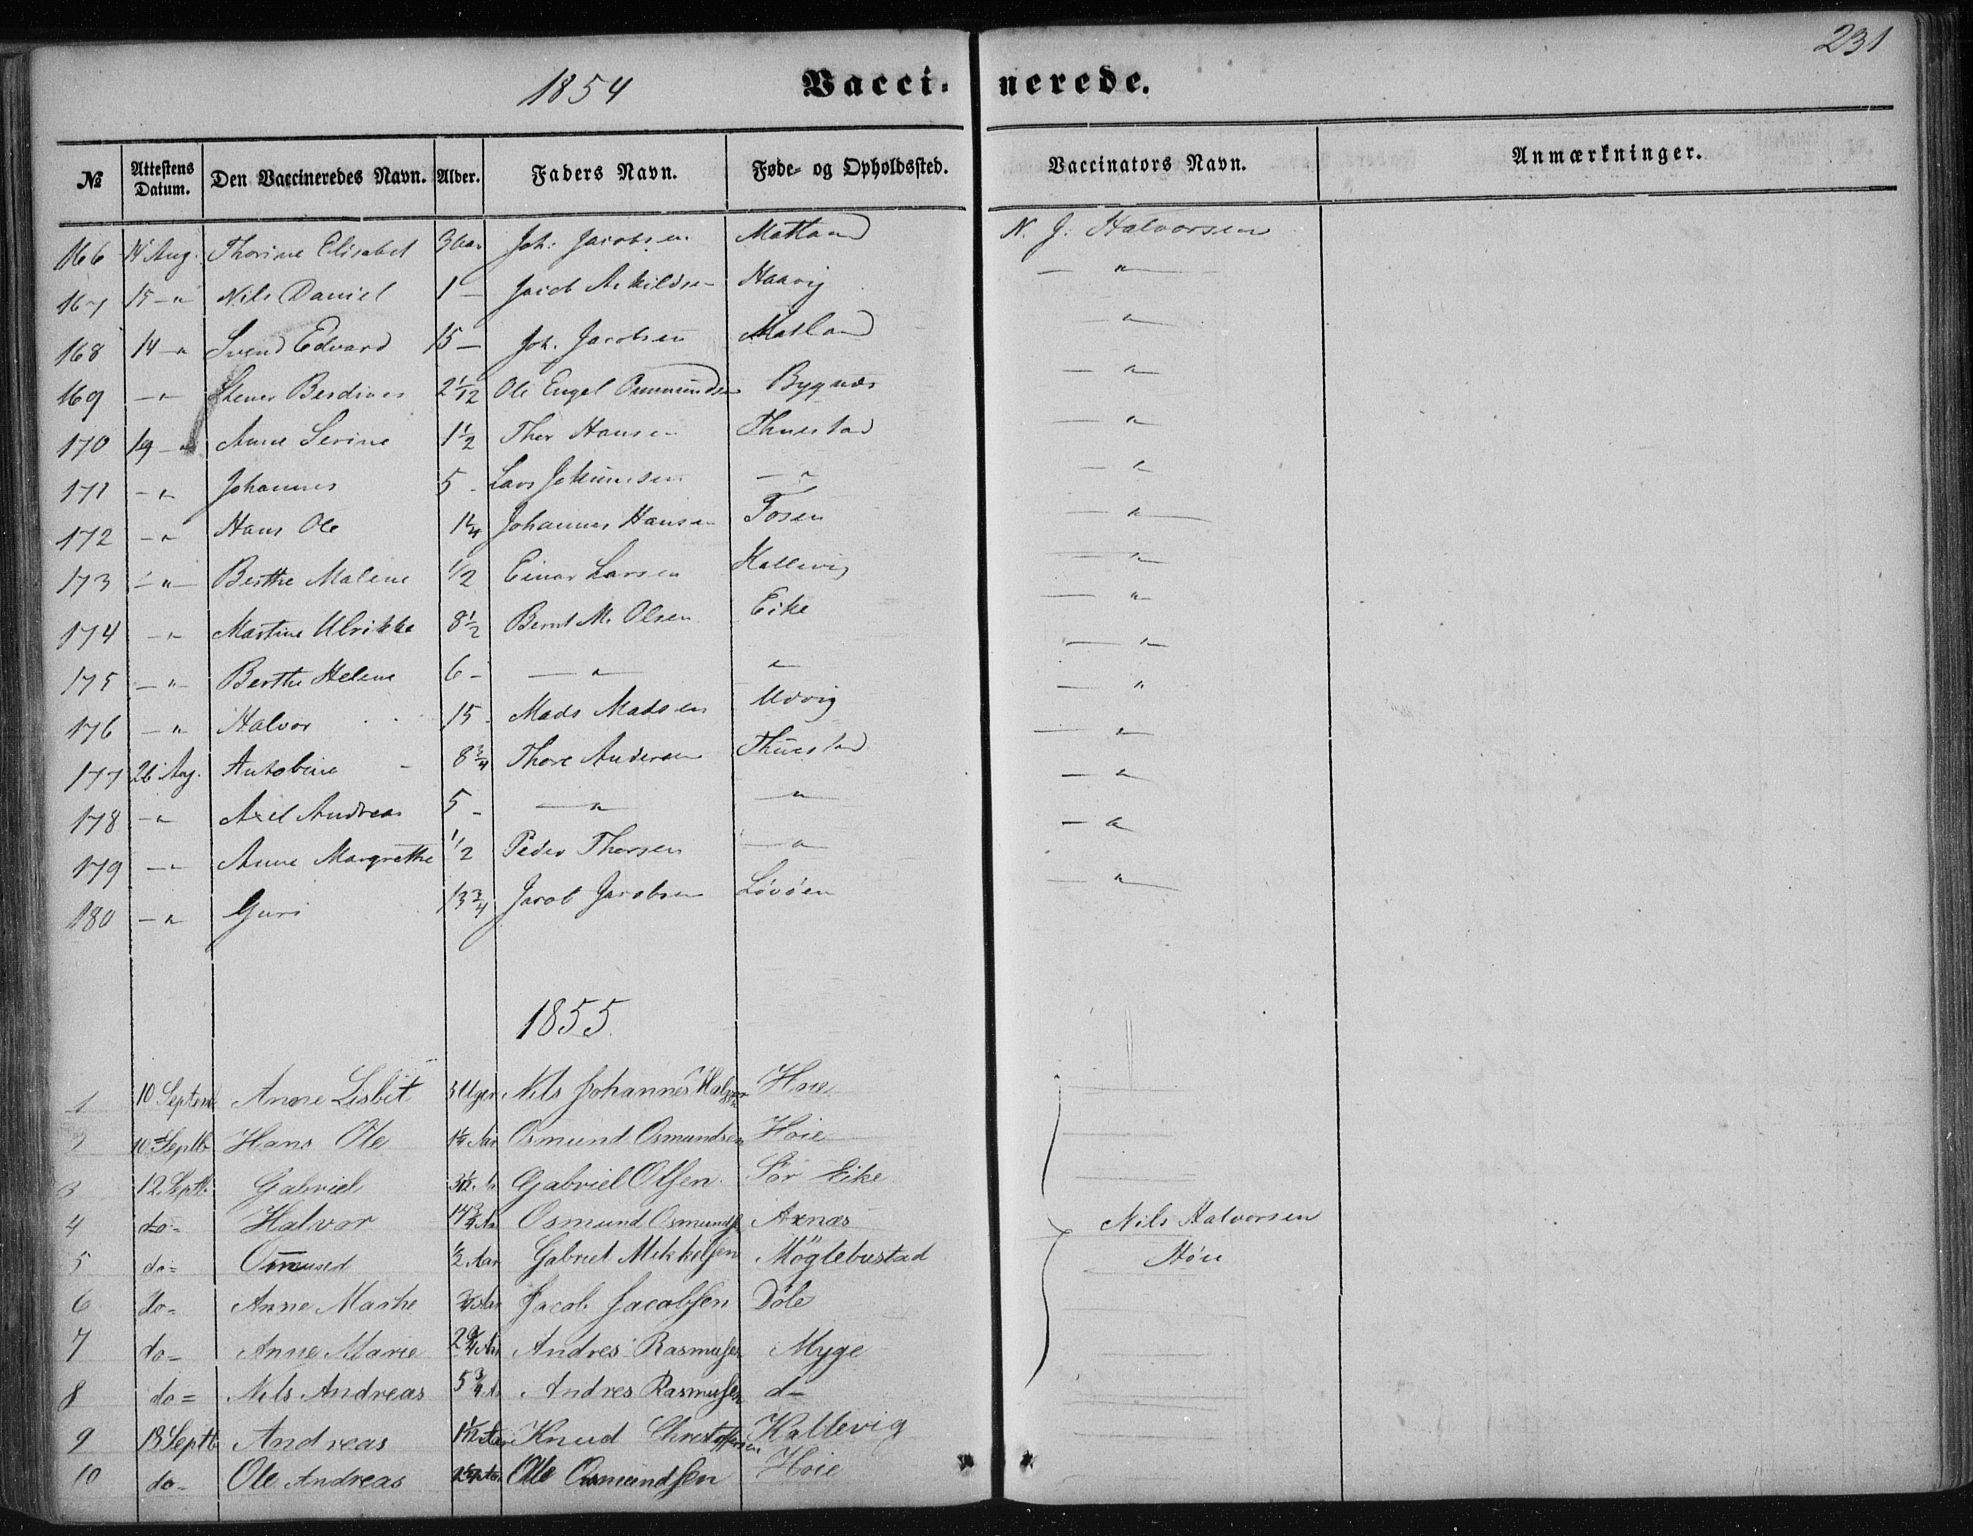 231
1854 Vacci- nerede.
№ Attestens Datum. Den Vaccineredes Navn. Alder. Faders Navn. Føde- og Opholdssted. Vaccinators Navn. Anmærkninger.
166 14 Aug. Thorine Elisabet 3 Aar Joh. Jacobsen Matland N. J. Halvorsen
167 15 — " Nils Daniel 1 — Jacob Haavig — " —
168 14 — " Svend Edvard 15 — Joh. Jacobsen Matland — " —
169 — " 2 1/12 Ole Engel Osmundsen Bygnæs — " —
170 19 — " Anne Serine 1 1/2 Thor Hansen Thuestad — " —
171 — " Johannes 5 - Lars — " — " —
172 — " Hans Ole 1 1/4 Johannes Hansen Fosen — " —
173 — " — Berthe Malene 1/2 Einar Larsen Kallevig — " —
174 — " Martine Ulrikke 8 1/2 Bernt M. Olsen Eike — " —
175 — " Berthe Helene 6 - — " — " — " —
176 — " Halvor 15 - Mads Madsen Udvig — "
177 26 Aug. Antobine 8 3/4 Thore Andersen Thuestad — " —
178 — " Axel Andreas 5 - — " — — " — — " —
179 — " Anne Margrethe 1/2 Peder Thorsen — " — — " —
180 — " Guri 13 3/4 Jacob Jacobsen Løvøen — " —
1855
1 10 Septem Anne Lisbet 3 Uger Nils Johannes Halvorsen Høie
2 10 Septb Hans Ole 1 1/2 Aar Osmund Osmundsen Hoie
3 12 Septb. Gabriel Gabriel Olsen Sør Eike
4 do- Halvor 14 3/4 Aar Osmund Osmunds Axnæs Nils Halvorsen
5 do- Osmund 1/2 Aar Gabriel Mikkelsen Møglebustad Høie
6 do- Anne Marthe Jacob Jacobsen Døle
7 do- Anne Marie Andres Rasmusen Myge
8 do= Nils Andreas 5 3/4 A Andres Rasmusen d-
9 13 Septb Andreas Knud Christoffersen Kallevig
10 do- Ole Andreas Ole Osmundsen Hoie